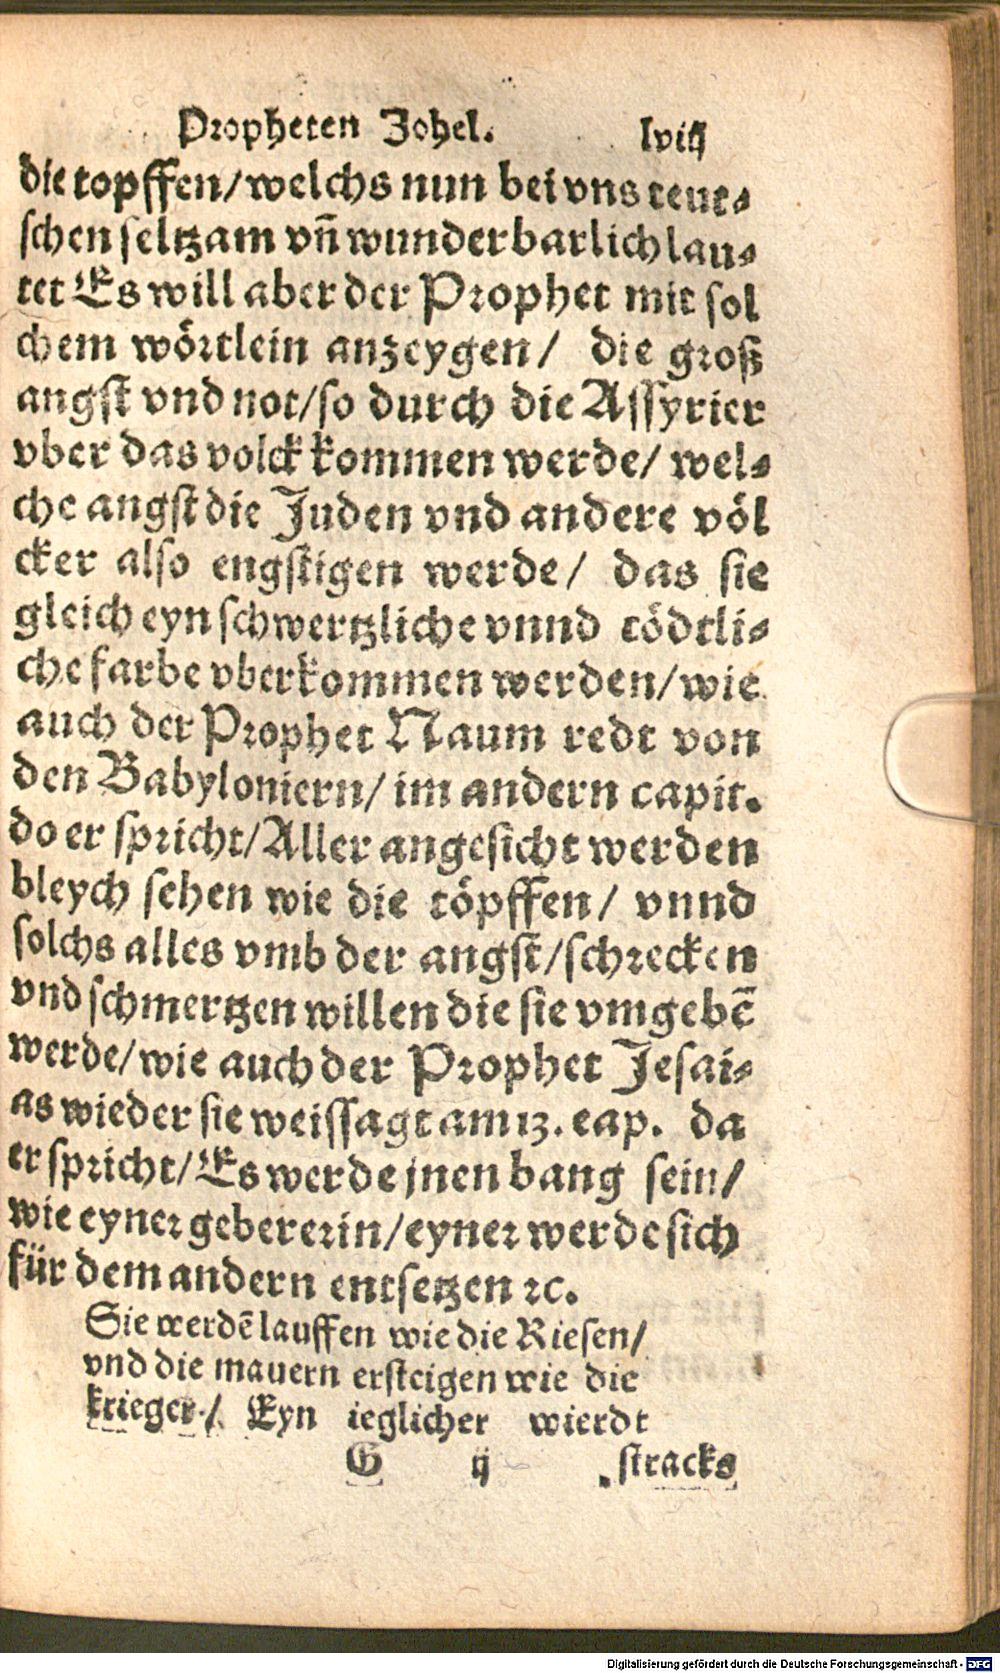 Propheten Johel. lviij
die topffen/welchs nun bei vns teut⸗
schen seltzam vñ wunderbarlich lau⸗
tet Es will aber der Prophet mit sol
chem wörtlein anzeygen/ die groß
angst vnd not/so durch die Assyrier
vber das volck kommen werde/ wel⸗
che angst die Juden vnd andere völ
cker also engstigen werde/ das sie
gleich eyn schwertzliche vnnd tödtli⸗
che farbe vberkommen werden/wie
auch der Prophet Naum redt von
den Babyloniern/ im andern capit.
do er spricht/Aller angesicht werden
bleych sehen wie die töpffen/ vnnd
solchs alles vmb der angst/schrecken
vnd schmertzen willen die sie vmgebē
werde/wie auch der Prophet Jesai⸗
as wieder sie weissagt am 13. eap. da
er spricht/Es werde jnen bang sein/
wie eyner gebererin/eyner werde sich
für dem andern entsetzen ꝛc.
Sie werdē lauffen wie die Riesen/
vnd die mauern ersteigen wie die
krieger/ Eyn ieglicher wierdt
G ij stracks
Digitalisierung gefördert durch die Deutsche Forschungsgemeinschaft - DFG